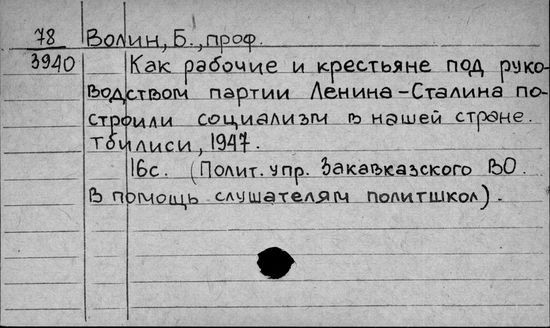 78 Волин, Б., проф.
3940 Как рабочие и крестьяне под руко-
водством партии Ленина-Сталина по-
строили социализм в нашей стране.
Тбилиси, 1947.
16с. (Полит. упр. Закавказского ВО.
В помощь слушателям политшкол).